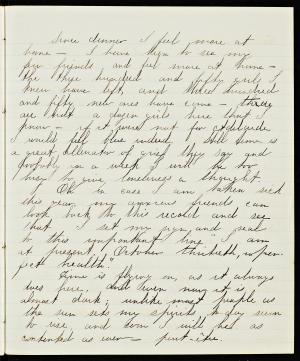 Since dinner I feel more at
home — I have been to see my
few friends and feel more at home —
the three hundred and fifty girls I
knew have left, and three hundred
and fifty new ones have come — there
are but a dozen girls here that I
know — if it were not for
I would feel blue indeed, still time is
a great of grief they say and
in a week I will be too
busy to give loneliness a thought.
Oh in case I am taken sick
this year, my anxious friends can
look back to this record and see
that I set my sign and seal
to this important line I am
at present, October thirtieth, in per-
fect health.
Time is flying on, as it always
does here, and even now it is
almost dark; unlike most people as
the sun sets my spirits to
to rise, and soon I will feel as
contented as ever — peut-être.